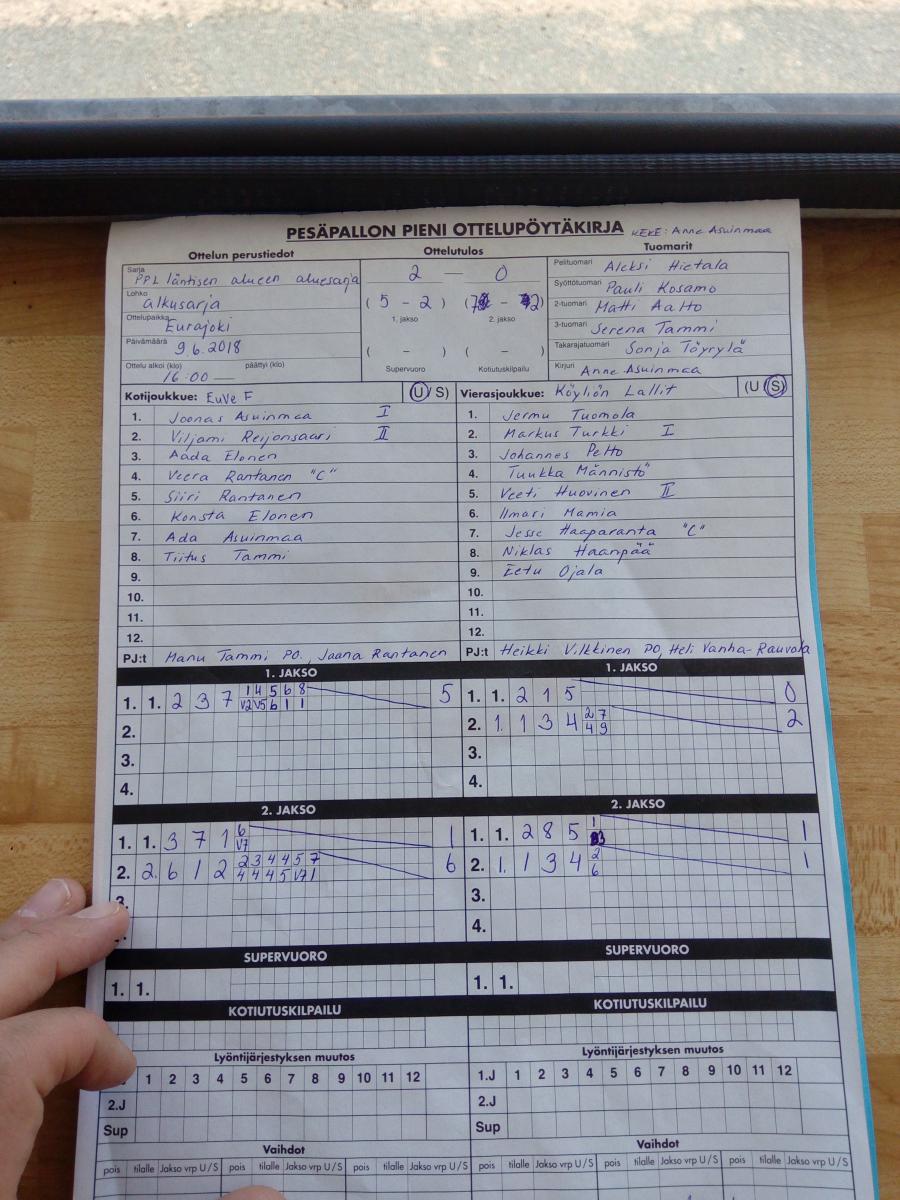 PESÄPALLON PIENI OTTELUPÖYTÄKIRJA KEKE: Anne Asuinmaa
Ottelun perustiedot
Sarja PPL läntisen alueen aluesarja
Lohko alkusarja
Ottelupaikka Eurajoki
Päivämäärä 9.6.2018
Ottelu alkoi (klo) 16:00 — päättyi (klo)
Ottelutulos
2 — 0
( 5 - 2 ) ( 7 - 2 )
1. jakso 2. jakso
( - ) ( - )
Supervuoro Kotiutuskilpailu
Tuomarit
Pelituomari Aleksi Hietala
Syöttötuomari Pauli Kosamo
2-tuomari Matti Aalto
3-tuomari Serena Tammi
Takarajatuomari Sonja Töyrylä
Kirjuri Anne Asuinmaa
Kotijoukkue: EuVe F (U/ S)
1. Joonas Asuinmaa I
2. Viljami Reijonsaari II
3. Aada Elonen
4. Veera Rantanen "C"
5. Siiri Rantanen
6. Konsta Elonen
7. Ada Asuinmaa
8. Tiitus Tammi
9.
10.
11.
12.
PJ:t Manu Tammi PO., Jaana Rantanen
Vierasjoukkue: Köyliön Lallit (U /S)
1. Jermu Tuomola
2. Markus Turkki I
3. Johannes Pelto
4. Tuukka Männistö
5. Veeti Huovinen II
6. Ilmari Mamia
7. Jesse Haaparanta "C"
8. Niklas Haanpää
9. Eetu Ojala
10.
11.
12.
PJ:t Heikki Vilkkinen PO, Heli Vanha-Rauvola
1. JAKSO
1. 1. 2 3 7 1 4 5 6 8 5
V2 V5 6 1 1
2.
3.
4.
1. JAKSO
1. 1. 2 1 5 0
2. 1. 1 3 4 2 7 2
4 9
3.
4.
2. JAKSO
1. 1. 3 7 1 6 1
V7
2. 2. 6 1 2 2 3 4 4 5 7 6
4 4 4 5 V7 1
3.
2. JAKSO
1. 1. 2 8 5 1 1
3
2. 1. 1 3 4 2 1
6
3.
4.
SUPERVUORO
1. 1.
SUPERVUORO
1. 1.
KOTIUTUSKILPAILU
KOTIUTUSKILPAILU
Lyöntijärjestyksen muutos
1 2 3 4 5 6 7 8 9 10 11 12
2.J
Sup
Lyöntijärjestyksen muutos
1.J 1 2 3 4 5 6 7 8 9 10 11 12
2.J
Sup
Vaihdot
pois tilalle Jakso vrp U/S pois tilalle Jakso vrp U/S pois tilalle Jakso vrp U/S
Vaihdot
pois tilalle Jakso vrp U/S pois tilalle Jakso vrp U/S pois tilalle Jakso vrp U/S